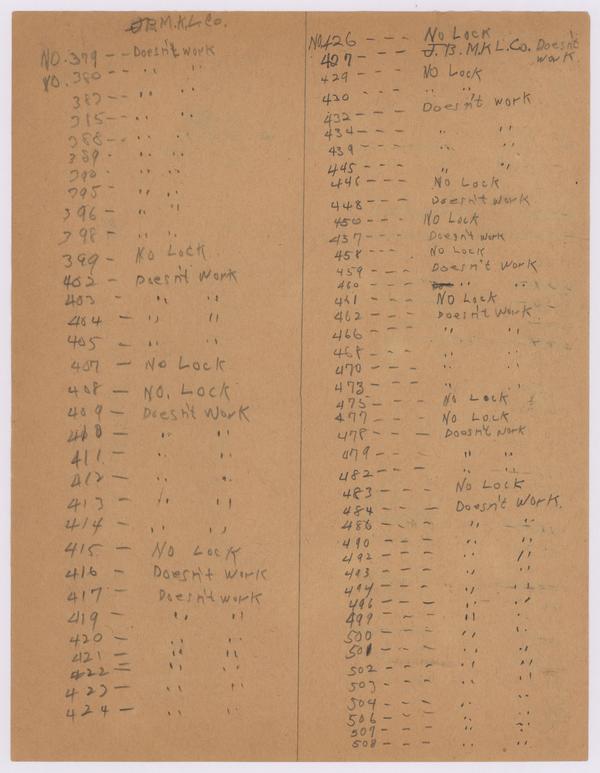 J.B.M.K.L.Co.
NO. 379 -- Doesn't work
NO. 380 -- " "
387 -- " "
315 -- " "
388 -- " "
389 - " "
390 - " "
395 - " "
396 - " "
398 - " "
399 - No Lock
402 - Doesn't Work
403 - " "
404 - " "
405 - " "
407 - No Lock
408 - NO. LOCK
409 - Doesn't Work
410 - " "
411 - " "
412 - " "
413 - " "
414 - " "
415 - No Lock
416 - Doesn't Work
417 - Doesn't work
419 - " "
420 - " "
421 - " "
422 - " "
423 - " "
424 - " "
No. 426 --- No Lock
427 --- J.B.M.K.L.Co. Doesn't work
429 --- No Lock
430 --- " "
432 --- Doesn't work
434 --- " "
439 --- " "
445 --- " "
446 --- No Lock
448 --- Doesn't work
450 --- No Lock
457 --- Doesn't work
458 --- No Lock
459 --- Doesn't Work
460 --- " "
461 --- No Lock
462 --- Doesn't Work
466 --- " "
468 --- " "
470 --- " "
473 --- " "
475 --- No Lock
477 --- No Lock
478 --- Doesn't work
479 --- " "
482 --- " "
483 --- No Lock
484 --- Doesn't Work.
486 --- " "
490 --- " "
492 --- " "
493 --- " "
494 --- " "
496 --- " "
499 --- " "
500 --- " "
501 --- " "
502 --- " "
503 --- " "
504 --- " "
506 --- " "
507 --- " "
508 --- " "